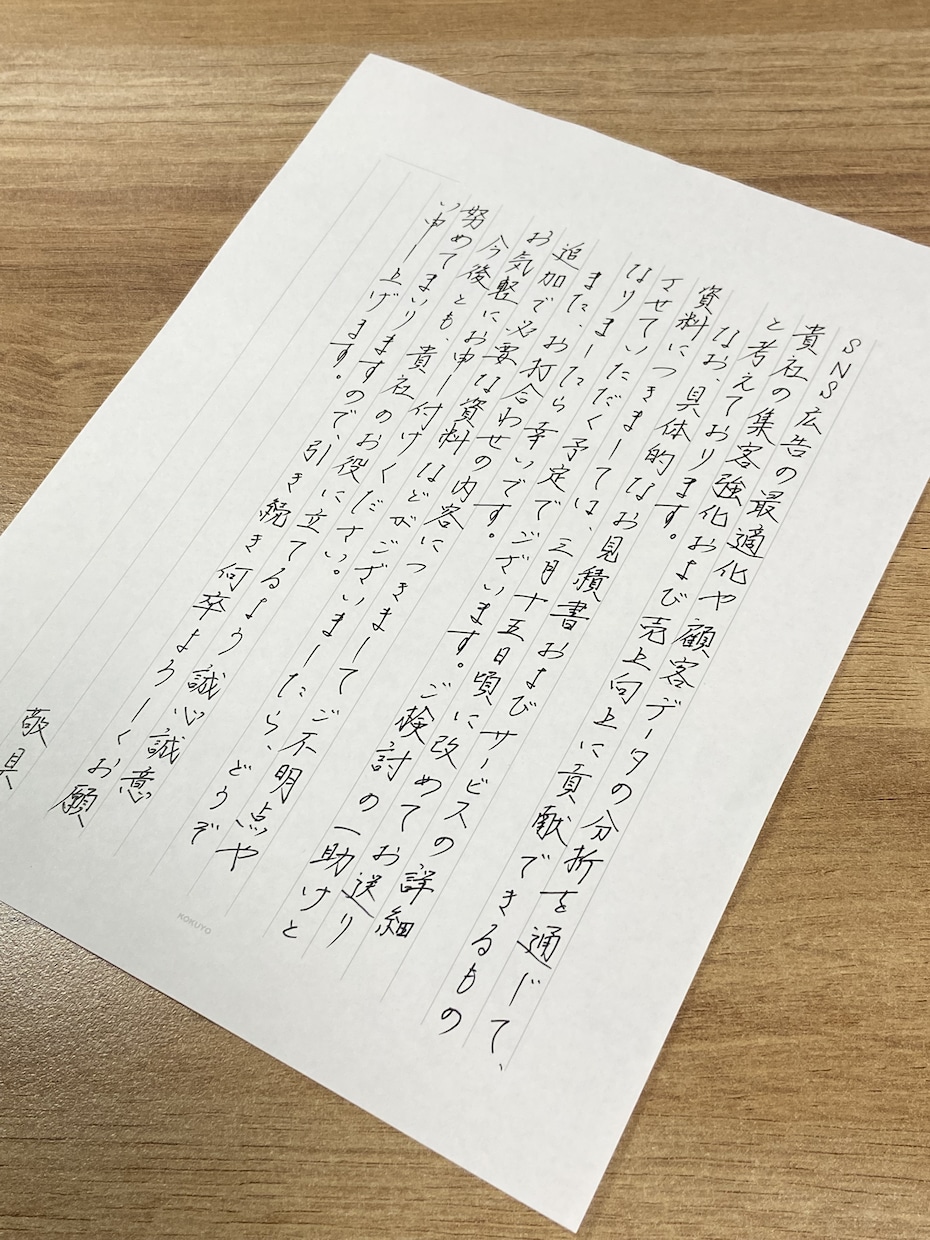 SNS広告の最適化や顧客データの分折を通じて、
貴社の集客強化および売上向上に貢献できるもの
と考えております。
なお、具体的なお見積書およびサービスの詳細
資料につきましては、三月十五日頃に改めてお送り
させていただく予定でございます。ご検討の一助けと
なりましたら幸いです。
また、お打合わせの内容につきましてご不明点や
追加で必要な資料などがございましたら、どうぞ
お気軽にお申し付けください。
今後とも、貴社のお役に立てるよう誠心誠意
努めてまいりますので、引き続き何卒よろしくお願
い申し上げます。
敬具
KOKUYO